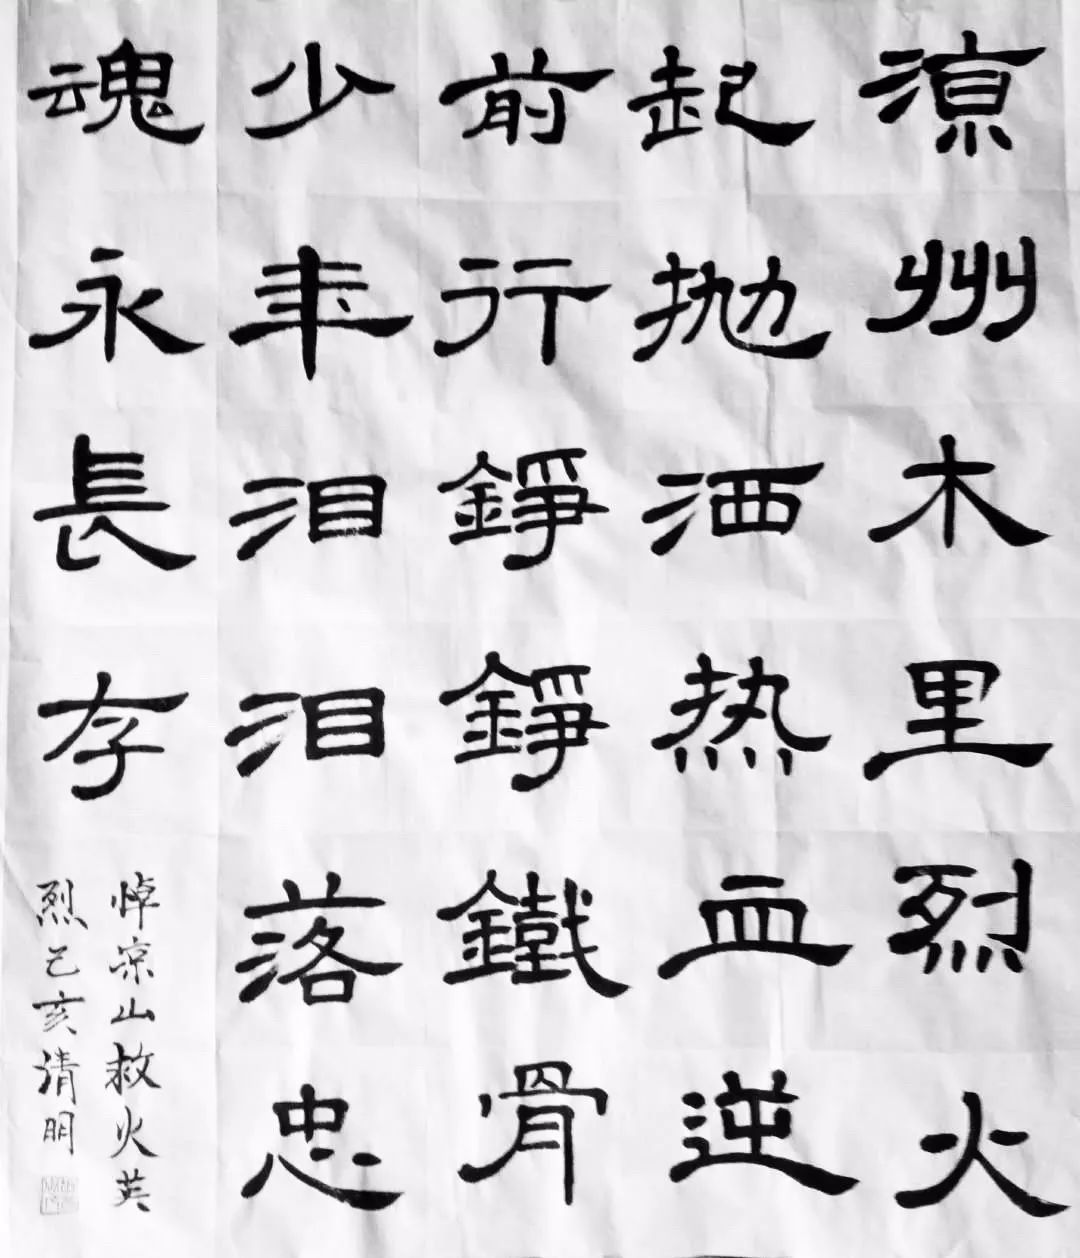 涼州木里烈火
起抛洒热血逆
前行錚錚鐵骨
少年泪泪落忠
魂永長存
悼凉山救火英
烈己亥清明